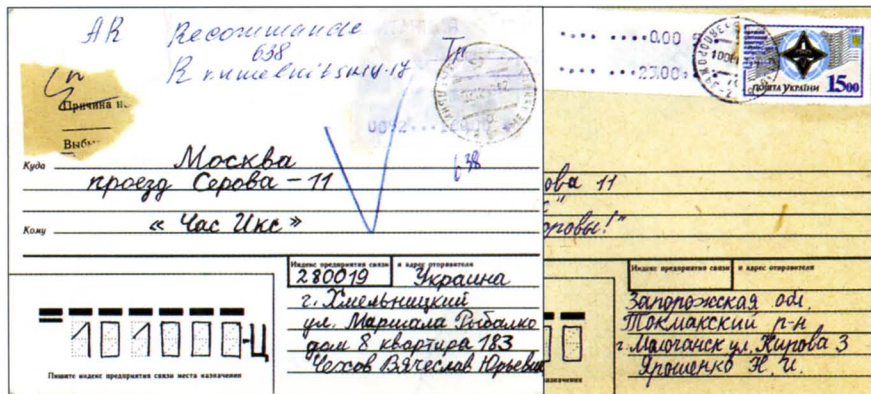 AR Recommande
638
R
Причина
Выбы
Куда Москва
проезд Серова - 11
638
Кому « Час Икс »
Индекс предприятия связи и адрес отправителя
280019 Украина
г. Хмельницкий
ул. Маршала Рыбалко
дом 8 квартира 183
Чехов Вячеслав Юрьевич
101000-Ц
Пишите индекс предприятия связи места назначения
0.00
23.00
ПОШТА УКРАЇНИ 15.00
ова 11
оровы!"
Индекс предприятия связи и адрес отправителя
Запорожская обл.
Токмакский р-н
г. Молочанск ул. Кирова 3
Ярошенко Н. И.
назначения